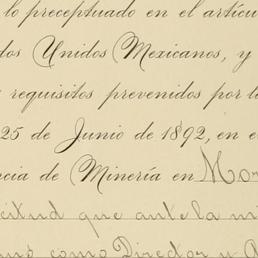 lo preceptuado en el artícu
dos Unidos Mexicanos, y
requisitos prevenidos por l
25 de Junio de 1892, en e
cia de Minería en Mor
citud que ante la mi
como Director y